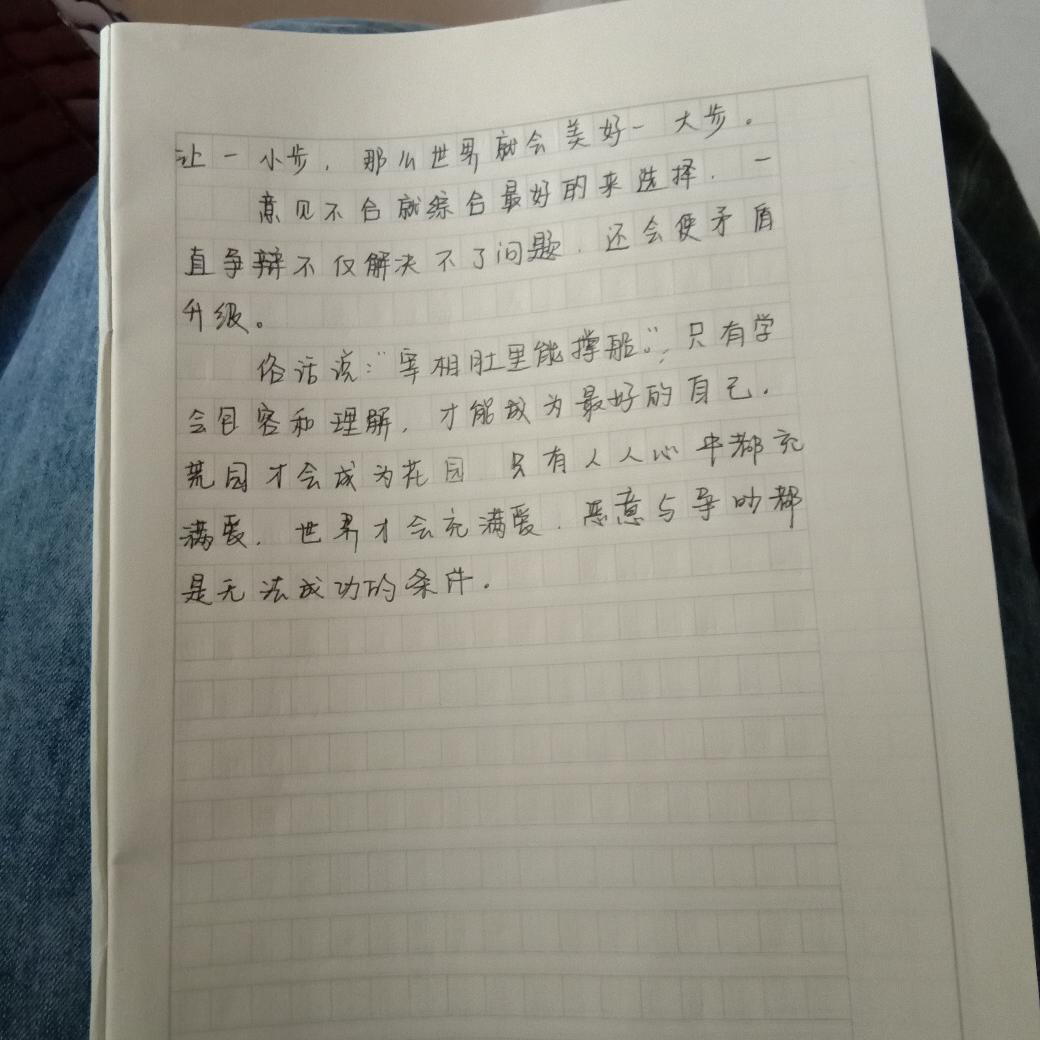 让一小步，那么世界就会美好一大步。
意见不合就综合最好的来选择，一
直争辩不仅解决不了问题，还会使矛盾
升级。
俗话说：“宰相肚里能撑船。”，只有学
会包容和理解，才能成为最好的自己。
荒园才会成为花园 只有人人心中都充
满爱，世界才会充满爱，恶意与争吵都
是无法成功的条件。